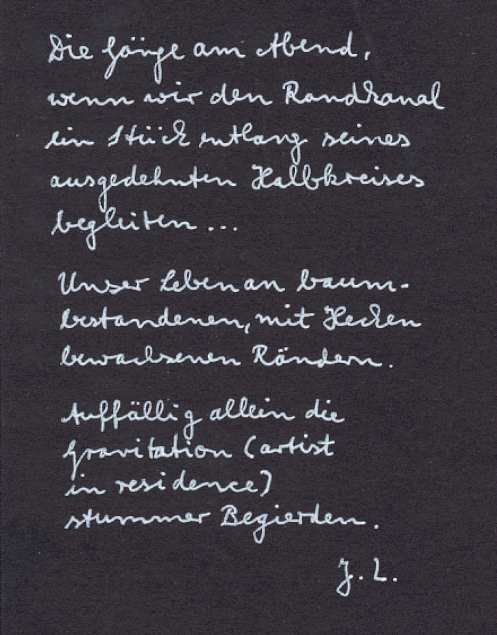 Die Gänge am Abend,
wenn wir den Randkanal
ein Stück entlang seines
ausgedehnten Halbkreises
begleiten...
Unser Leben an baum-
bestandenen, mit Hecken
bewachsenen Rändern.
Auffällig allein die
Gravitation (artist
in residence)
stummer Begierden.
J. L.